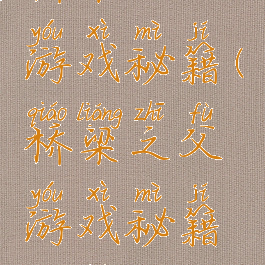 yóu xì mì jí
游戏秘籍(
qiáo liáng zhī fù
桥梁之父
yóu xì mì jí
游戏秘籍